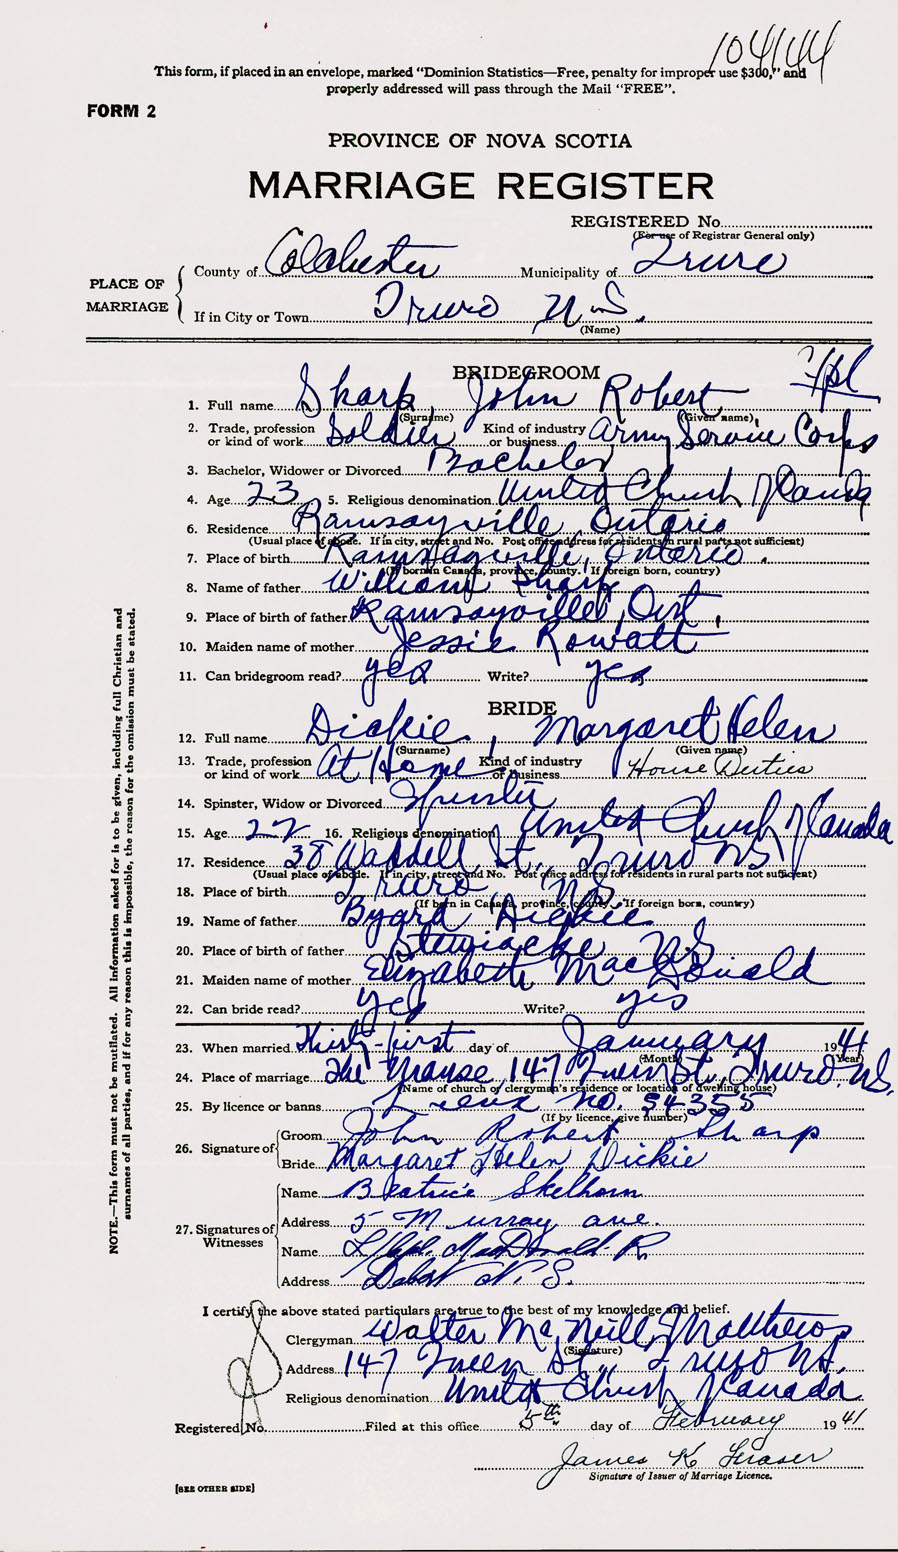 104144
This form, if placed in an envelope, marked "Dominion Statistics—Free, penalty for improper use $300," and
properly addressed will pass through the Mail "FREE".
FORM 2
PROVINCE OF NOVA SCOTIA
MARRIAGE REGISTER
REGISTERED No.
(For use of Registrar General only)
PLACE OF MARRIAGE
County of Colchester Municipality of Truro
If in City or Town Truro N.S.
(Name)
BRIDEGROOM
1. Full name Sharp, John Robert
(Surname) (Given name)
2. Trade, profession or kind of work Soldier Kind of industry or business Army Service Corps
3. Bachelor, Widower or Divorced Bachelor
4. Age 23 5. Religious denomination United Church of Canada
6. Residence Ramsayville, Ontario
(Usual place of abode. If in city, street and No. Post office address for residents in rural parts not sufficient)
7. Place of birth Ramsayville, Ontario.
(If born in Canada, province, county. If foreign born, country)
8. Name of father William Sharp
9. Place of birth of father Ramsayville, Ont.
10. Maiden name of mother Jessie Rowatt
11. Can bridegroom read? yes Write? yes
BRIDE
12. Full name Dickie, Margaret Helen
(Surname) (Given name)
13. Trade, profession or kind of work At Home Kind of industry or business House Duties
14. Spinster, Widow or Divorced Spinster
15. Age 22 16. Religious denomination United Church of Canada
17. Residence 38 Waddell St., Truro NS
(Usual place of abode. If in city, street and No. Post office address for residents in rural parts not sufficient)
18. Place of birth Truro, NS
(If born in Canada, province, county. If foreign born, country)
19. Name of father Byard Dickie
20. Place of birth of father Stewiacke NS
21. Maiden name of mother Elizabeth MacDonald
22. Can bride read? yes Write? yes
23. When married Thirty-first day of January 1941
(Month) (Year)
24. Place of marriage The Manse, 147 Queen St., Truro N.S.
(Name of church or clergyman's residence or location of dwelling house)
25. By licence or banns Licence No. 54355
(If by licence, give number)
26. Signature of
Groom John Robert Sharp
Bride Margaret Helen Dickie
27. Signatures of Witnesses
Name Beatrice Skelhorn
Address 5 Murray ave.
Name L/Cpl. MacDonald. R
Address Debert N.S.
I certify the above stated particulars are true to the best of my knowledge and belief.
Clergyman Walter Mc Neill Matthews
(Signature)
Address 147 Queen St., Truro N.S.
Religious denomination United Church of Canada
Registered No. Filed at this office 5th day of February 1941
James K Fraser
Signature of Issuer of Marriage Licence.
[SEE OTHER SIDE]
NOTE.—This form must not be mutilated. All information asked for is to be given, including full Christian and
surnames of all parties, and if for any reason this is impossible, the reason for the omission must be stated.